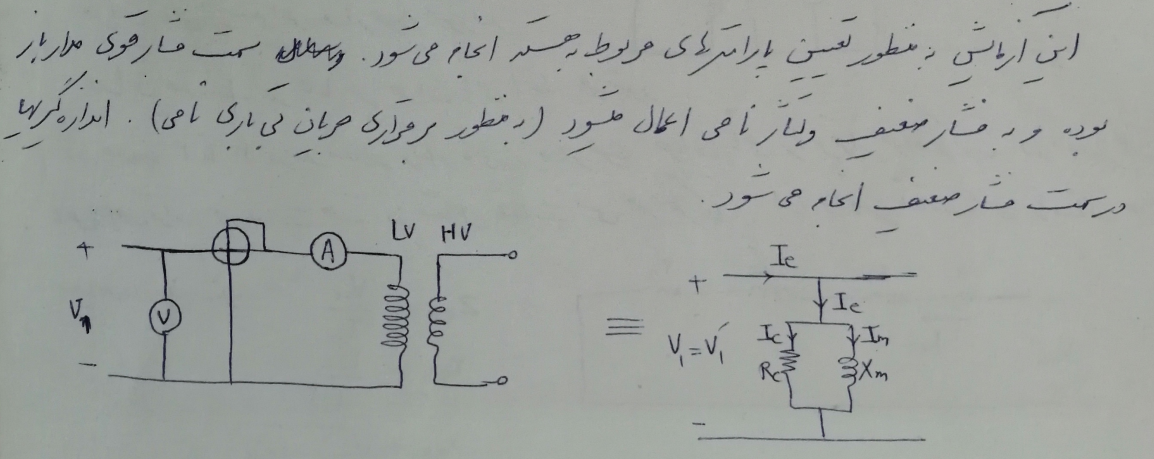 این آزمایش به منظور تعیین پارامترهای مربوط به هسته انجام می شود. سمت فشار قوی مدار باز
بوده و به فشار ضعیف ولتاژ نامی اعمال میشود (به منظور برقراری جریان بی باری نامی). اندازه گیریها
در سمت فشار ضعیف انجام می شود.
LV HV
+ A
V
V₁
−
≡
Ie
+
Ie
Ic Im
V₁=V₁′
Rc Xm
−